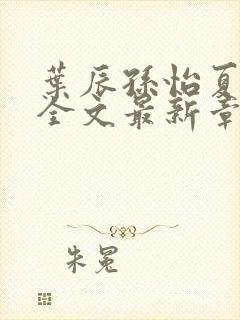 葉辰孫怡夏
全文最新章
朱冕